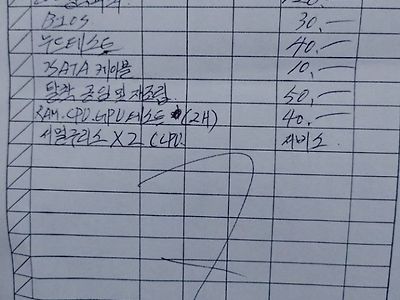 BIOS 30.-
누드테스트 40.-
SATA 케이블 10.-
탈착 공임 및 재조립. 50.-
RAM.CPU.GPU 테스트 (2H) 40.-
써멀구리스 X 2 CPU. 서비스.